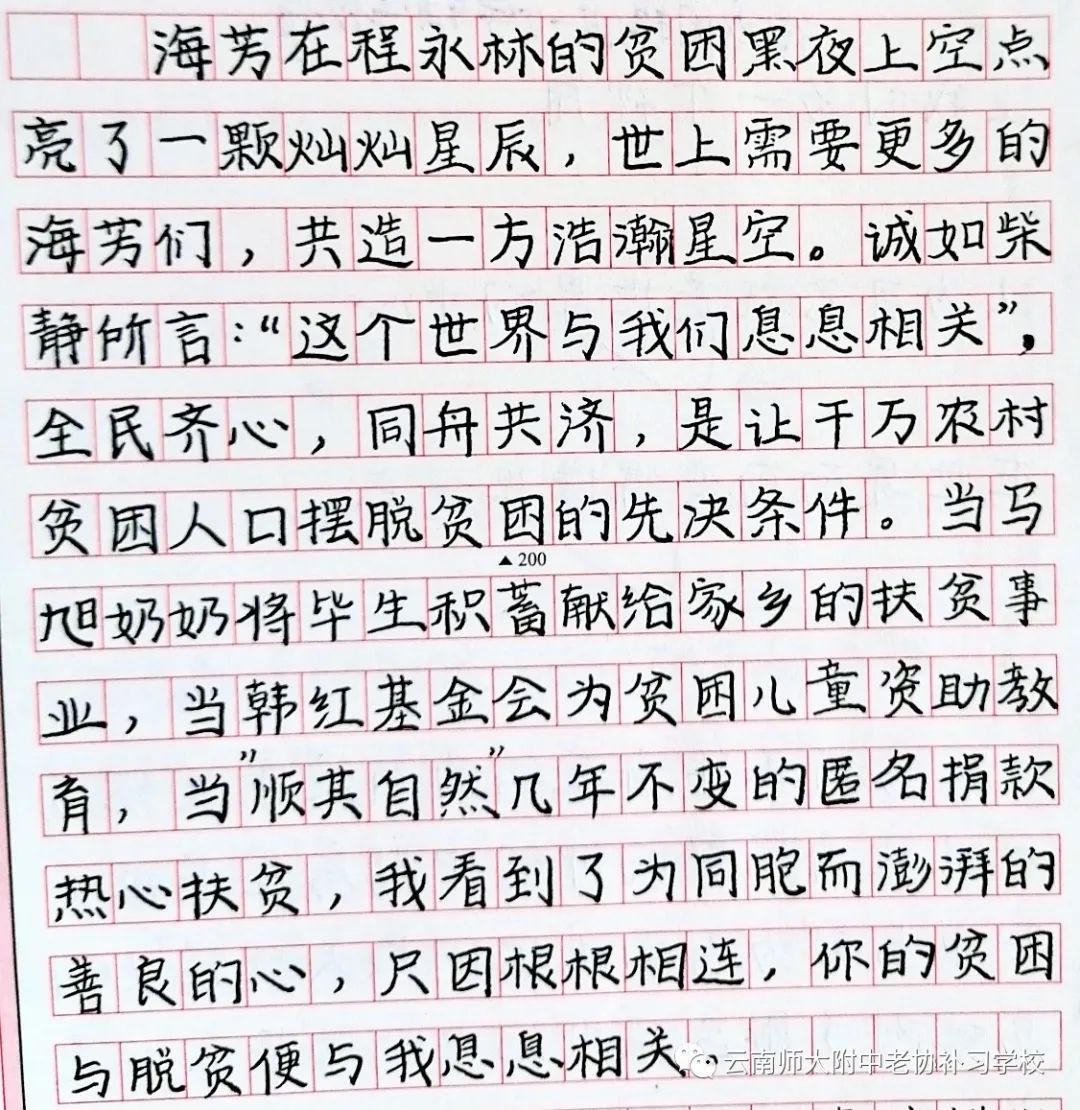 海芳在程永林的贫困黑夜上空点
亮了一颗灿灿星辰，世上需要更多的
海芳们，共造一方浩瀚星空。诚如柴
静所言：“这个世界与我们息息相关”，
全民齐心，同舟共济，是让千万农村
贫困人口摆脱贫困的先决条件。当马
▲200
旭奶奶将毕生积蓄献给家乡的扶贫事
业，当韩红基金会为贫困儿童资助教
育，当”顺其自然”几年不变的匿名捐款
热心扶贫，我看到了为同胞而澎湃的
善良的心，只因根根相连，你的贫困
与脱贫便与我息息相关。
云南师大附中老协补习学校